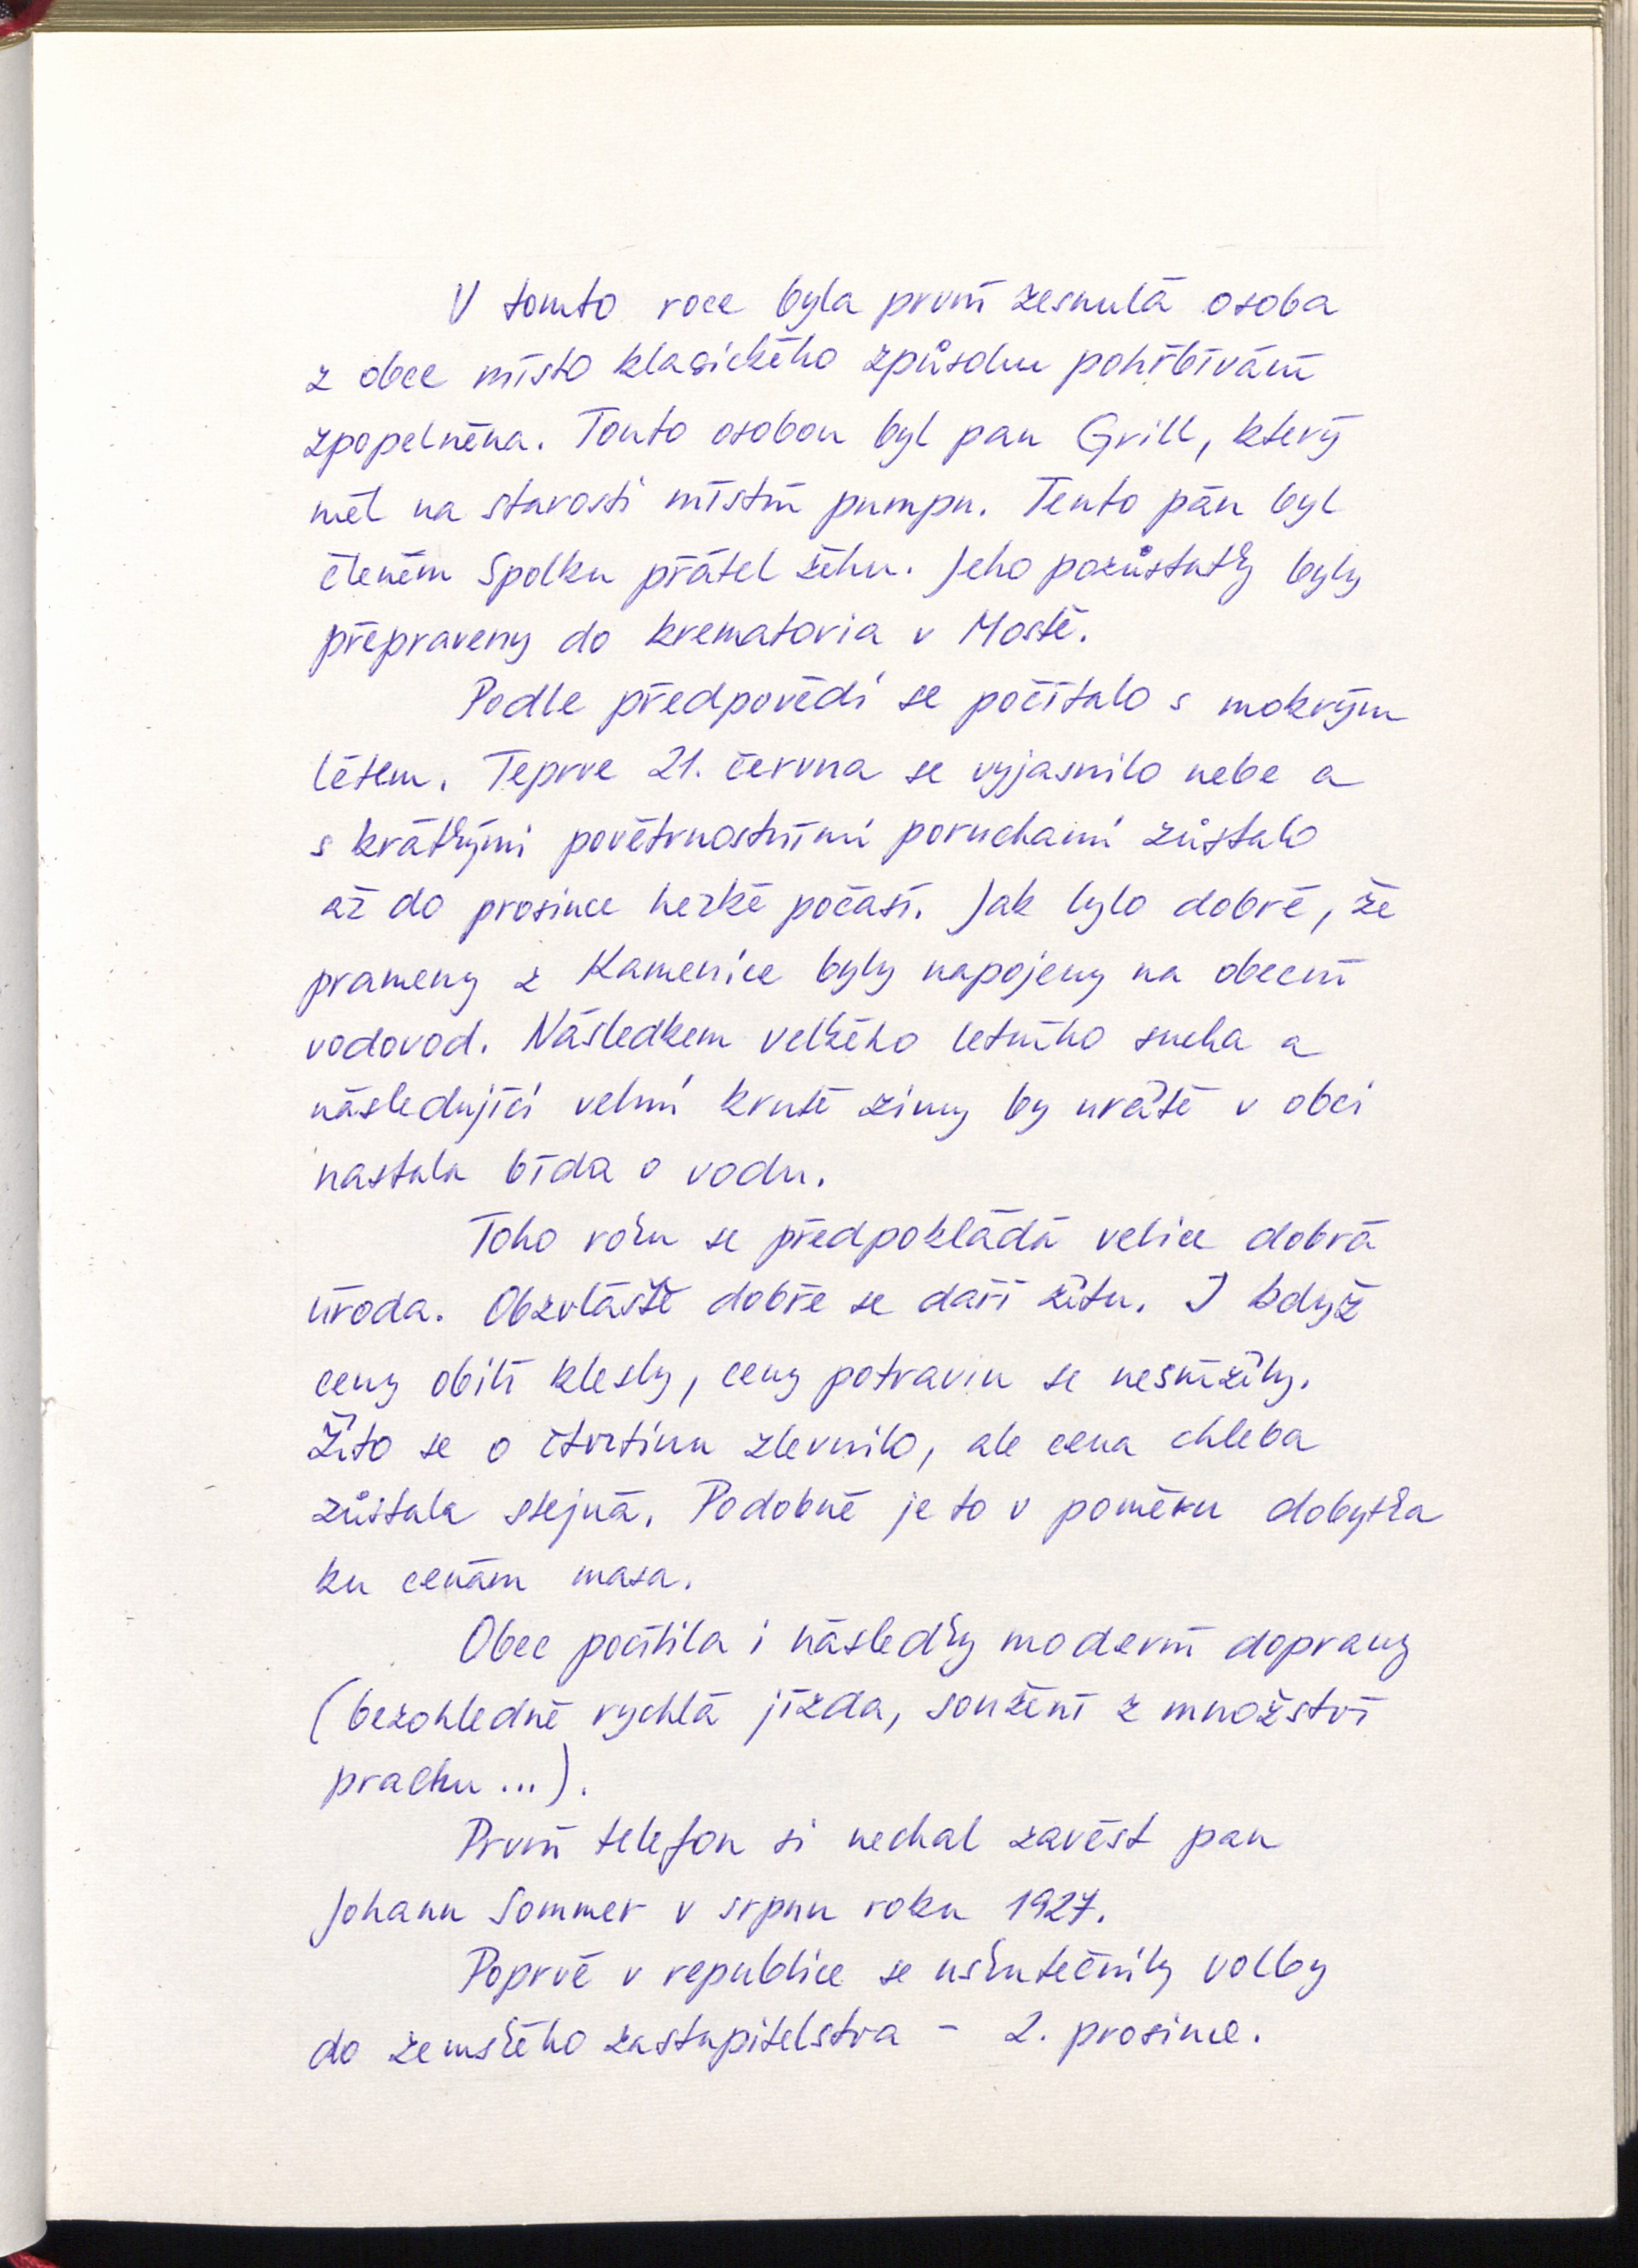 V tomto roce byla první zesnulá osoba
z obce místo klasického způsobu pohřbívání
zpopelněna. Touto osobou byl pan Grill, který
měl na starosti místní pumpu. Tento pán byl
členěm Spolku přátel žehu. Jeho pozůstatky byly
přepraveny do krematoria v Mostě.
Podle předpovědi se počítalo s mokrým
létem. Teprve 21. června se vyjasnilo nebe a
s krátkými povětrnostními poruchami zůstalo
až do prosince hezké počasí. Jak bylo dobré, že
prameny z Kamenice byly napojeny na obecní
vodovod. Následkem velkého letního sucha a
následující velmi kruté zimy by určitě v obci
nastala bída o vodu.
Toho roku se předpokládá velice dobrá
úroda. Obzvláště dobře se daří žitu. I když
ceny obilí klesly, ceny potravin se nesnížily.
Žito se o čtvrtinu zlevnilo, ale cena chleba
zůstala stejná. Podobně je to v poměru dobytka
ku cenám masa.
Obec pocítila i následky moderní dopravy
(bezohledně rychlá jízda, soužení z množství
prachu ...).
První telefon si nechal zavést pan
Johann Sommer v srpnu roku 1927.
Poprvé v republice se uskutečnily volby
do zemského zastupitelstva - 2. prosince.